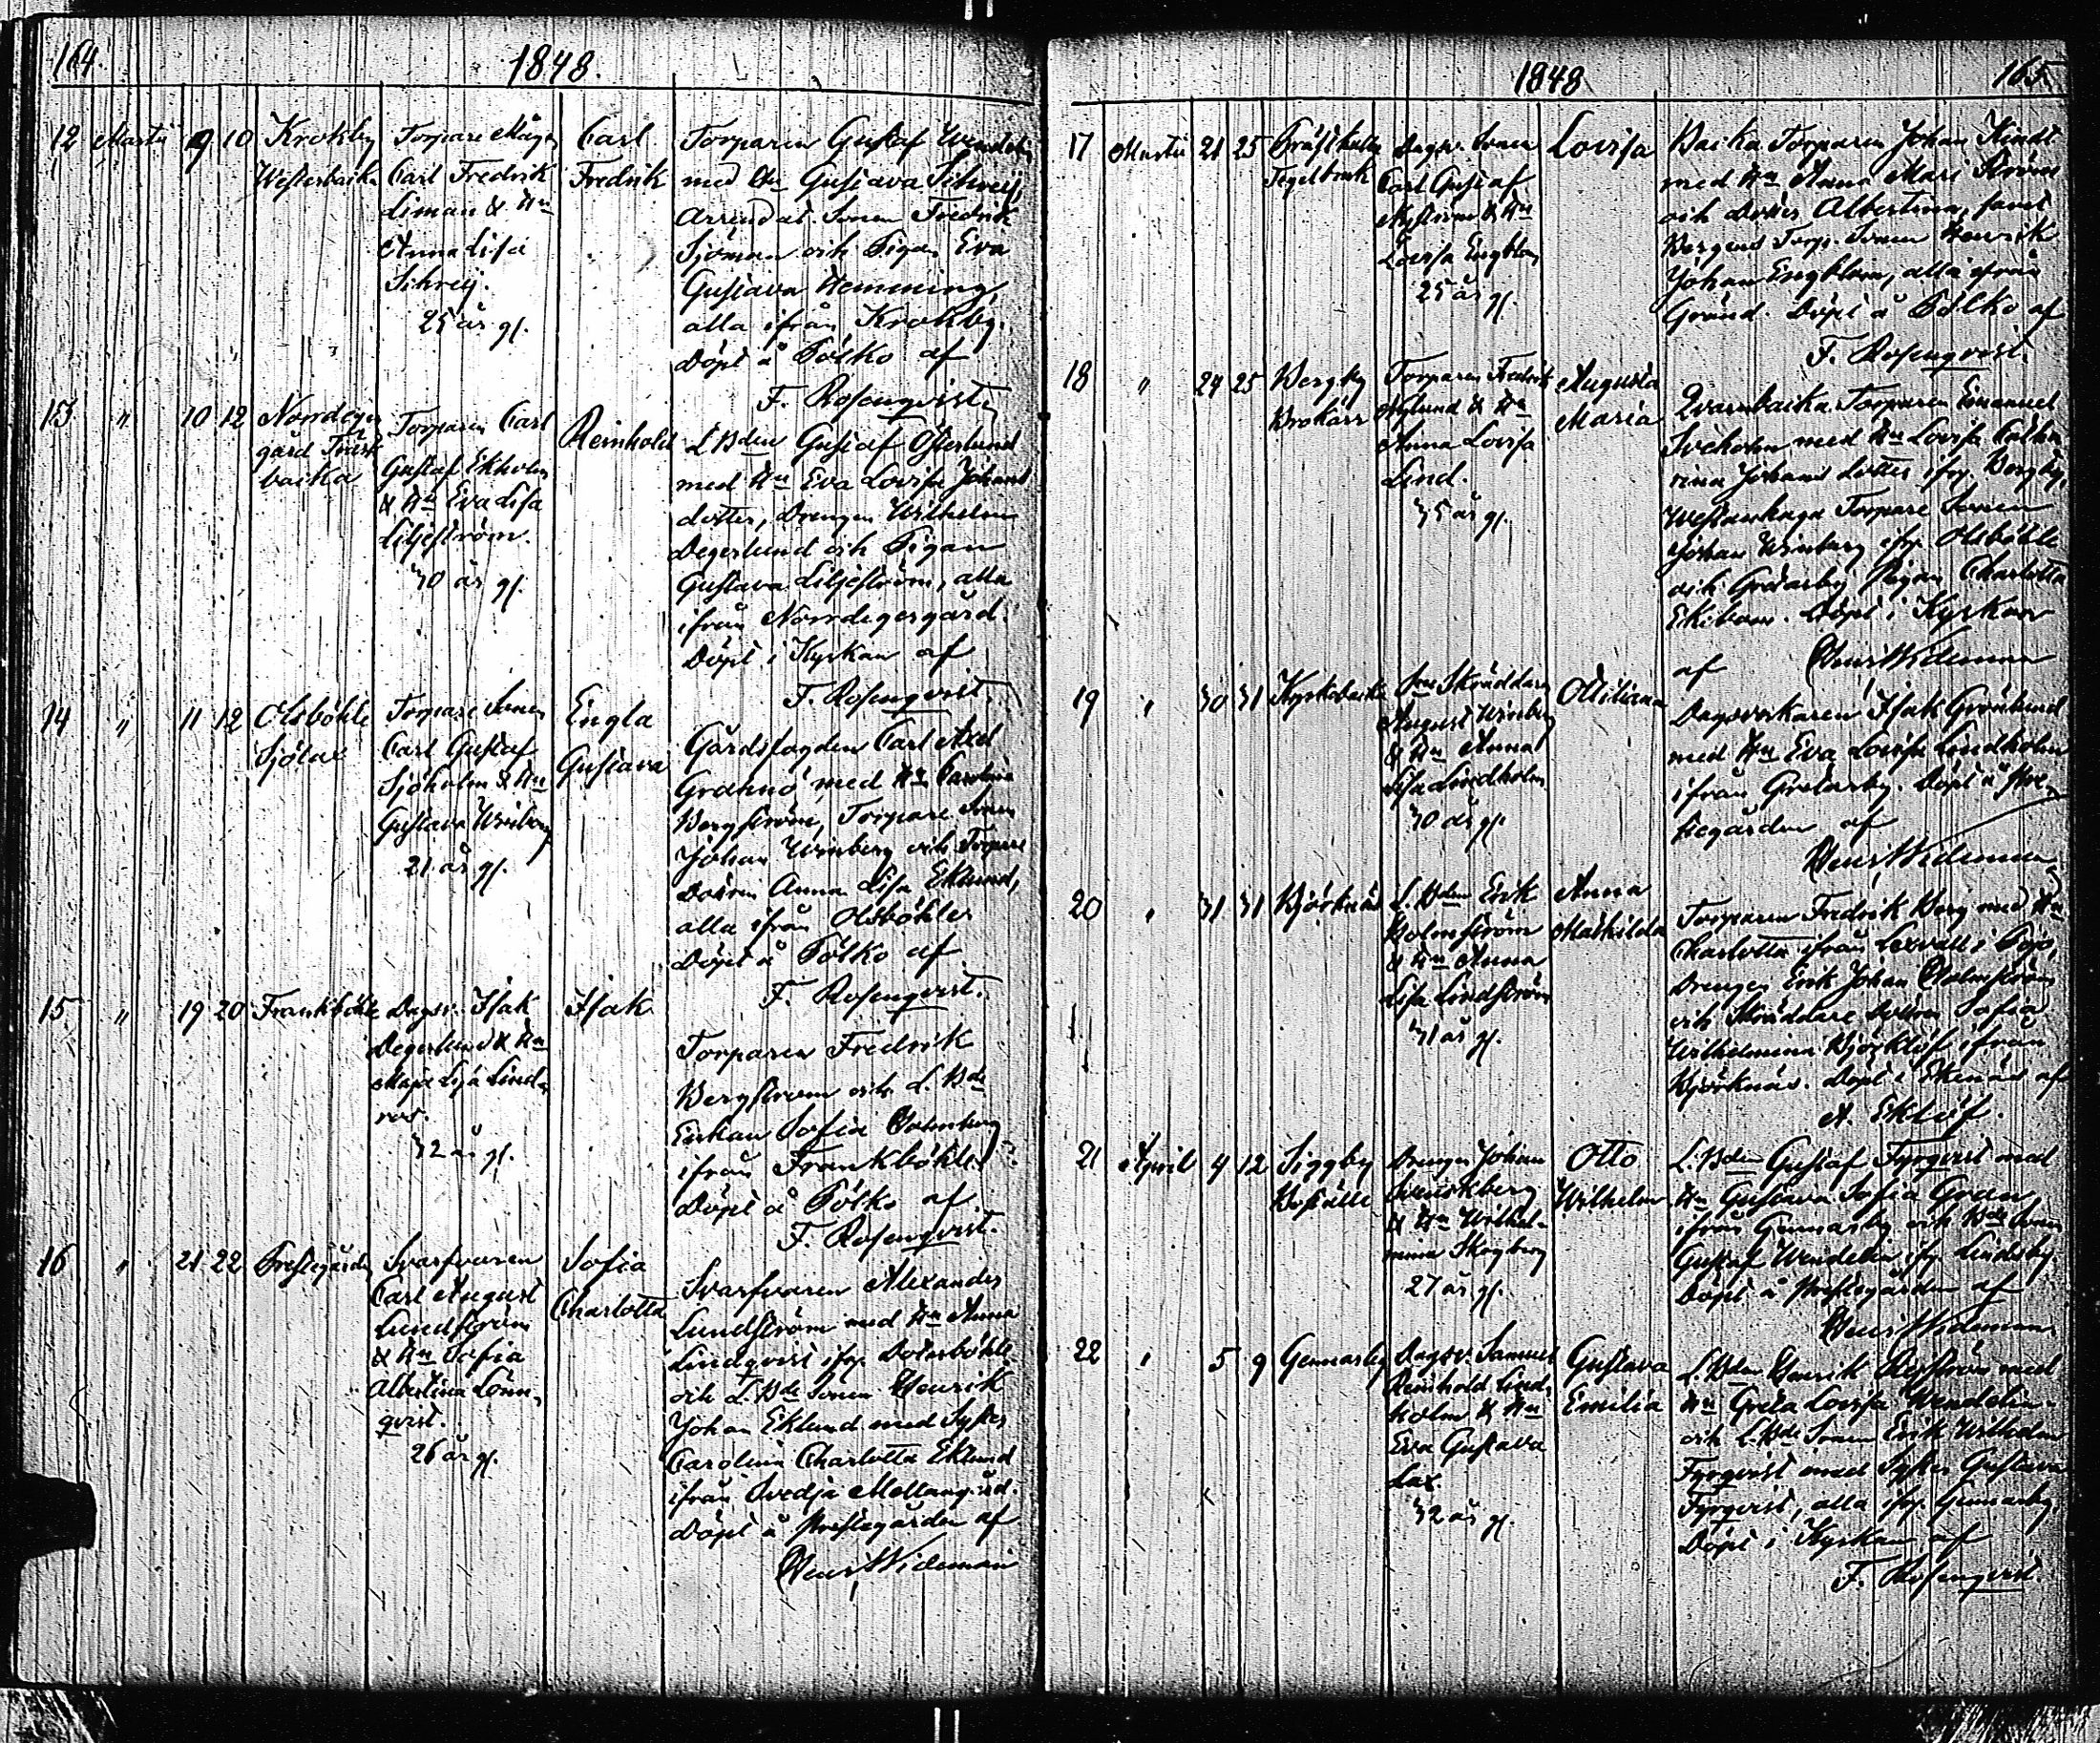 164.
1848.
12 Martii 9 10 Krokby
Westerbacka
Torpare Mågen
Carl Fredrik
Liman & Hu
Anna Lisa
Schreij.
25 år gl.
Carl
Fredrik
Torparen Gustaf Wendelin
med Hu Gustava Schreij,
Arrendat. Sonen Fredrik
Sjöman och Pigan Eva
Gustava Hemming,
alla ifrån Krokby.
Döpt å Pölko af
F. Rosenqvist.
13 " 10 12 Norrdeger
gård Träsk
backa
Torparen Carl
Gustaf Ekholm
& Hu Eva Lisa
Liljeström.
30 år gl.
Reinhold
L. Bden Gustaf Österlund
med Hu Eva Lovisa Johans
dotter, Drengen Wilhelm
Degerlund och Pigan
Gustava Liljeström, alla
ifrån Norrdegergård.
Döpt i Kyrkan af
F. Rosenqvist.
14 " 11 12 Olsböhle
Torpare Sonen
Carl Gustaf
Sjöholm & Hu
Gustava Winberg
21 år gl.
Engla
Gustava
Gårdsfogden Carl Axel
Granno med Hu Carolina
Bergström, Torpare Sonen
Johan Winberg och Torpare
Dottren Anna Lisa Eklund,
alla ifrån Olsböhle
Döpt å Pölko af
F. Rosenqvist.
15 " 19 20 Frankböhle
Dagsv. Isak
Degerlund & Hu
Maja Lisa Lind-
ros.
32 år gl.
Isak
Torparen Fredrik
Bergström och L. Bde
Enkan Sofia Holmberg
ifrån Frankböhle
Döpt å Pölko af
F. Rosenqvist.
16 " 21 22 Prestegården
Svarfvaren
Carl August
Lundström
& Hu Sofia
Albertina Lönn-
qvist.
26 år gl.
Sofia
Charlotta
Svarfvaren Alexander
Lundström med Hu Anna
Lindqvist ifr. Dotterböhle
och L. Bde Sonen Henrik
Johan Eklund med Syster
Carolina Charlotta Eklund
ifrån Svedja Mellangård.
Döpt å Prestegården af
Henr. Wideman
1848
165
17 Martii 21 25 Präskulla
Tegelbruk
Dagsv. Sonen
Carl Gustaf
Nyström & Hu
Lovisa Engblom
25 år gl.
Lovisa
Backa Torparen Johan Kindt
med Hu Anna Mari Ström
och Dotter Albertina, samt
Bergens Torp. Sonen Henrik
Johan Engblom, alla ifrån
Gründ. Döpt å Pölko af
F. Rosenqvist.
18 " 24 25 Bergby
Brokärr
Torparen Fredrik
Nylund & Hu
Anna Lovisa
Lind.
35 år gl.
Augusta
Maria
Qvarnbacka Torparen Emanuel
Sveholm med Hu Lovisa Catha
rina Johans dotter ifr. Bergby,
Westanhaga Torpare Sonen
Johan Winberg ifr. Olsböhle
och Gretarby Pigan Charlotta
Ekebom. Döpt i Kyrkan
af Henr. Wideman
19 " 30 31 Kyrkobacka
Skräddaren
August Winberg
& Hu Anna
Lisa Lindholm
30 år gl.
Ottiliana
Dagsverkaren Isak Grönlund
med Hu Eva Lovisa Lindholm
ifrån Gretarby. Döpt å Pre-
stegården af
Henr. Wideman
20 " 31 31 Björknäs
L. Bden Erik
Holmström
& Hu Anna
Lisa Lindström
31 år gl.
Anna
Mathilda
Torparen Fredrik Berg med Hu
Charlotta ifrån Lexvall i Pojo,
Drengen Erik Johan Holmström
och Skräddare Dottren Sofia
Wilhelmina Björklöf ifrån
Björknäs. Döpt i Ekenäs af
A. Eklöf.
21 April 4 12 Siggby
Boställe
Drengen Johan
Svenskberg
& Hu Wilhel-
mina Skogberg
27 år gl.
Otto
Wilhelm
L. Bden Gustaf Fyrqvist med
Hu Gustava Sofia Gran,
ifrån Gennarby och Bde Sonen
Gustaf Wendelin ifr. Lindsby.
Döpt å Prestegården af
Henr. Wideman
22 " 5 9 Gennarby
Dagsv. Samuel
Reinhold Lind-
holm & Hu
Eva Gustava
Lax.
32 år gl.
Gustava
Emilia
L. Bden Henrik Nyström med
Hu Greta Lovisa Wendelin
och L. Bde Sonen Erik Wilhelm
Fyrqvist med Syster Gustava
Fyrqvist, alla ifr. Gennarby.
Döpt i Kyrkan af
F. Rosenqvist.